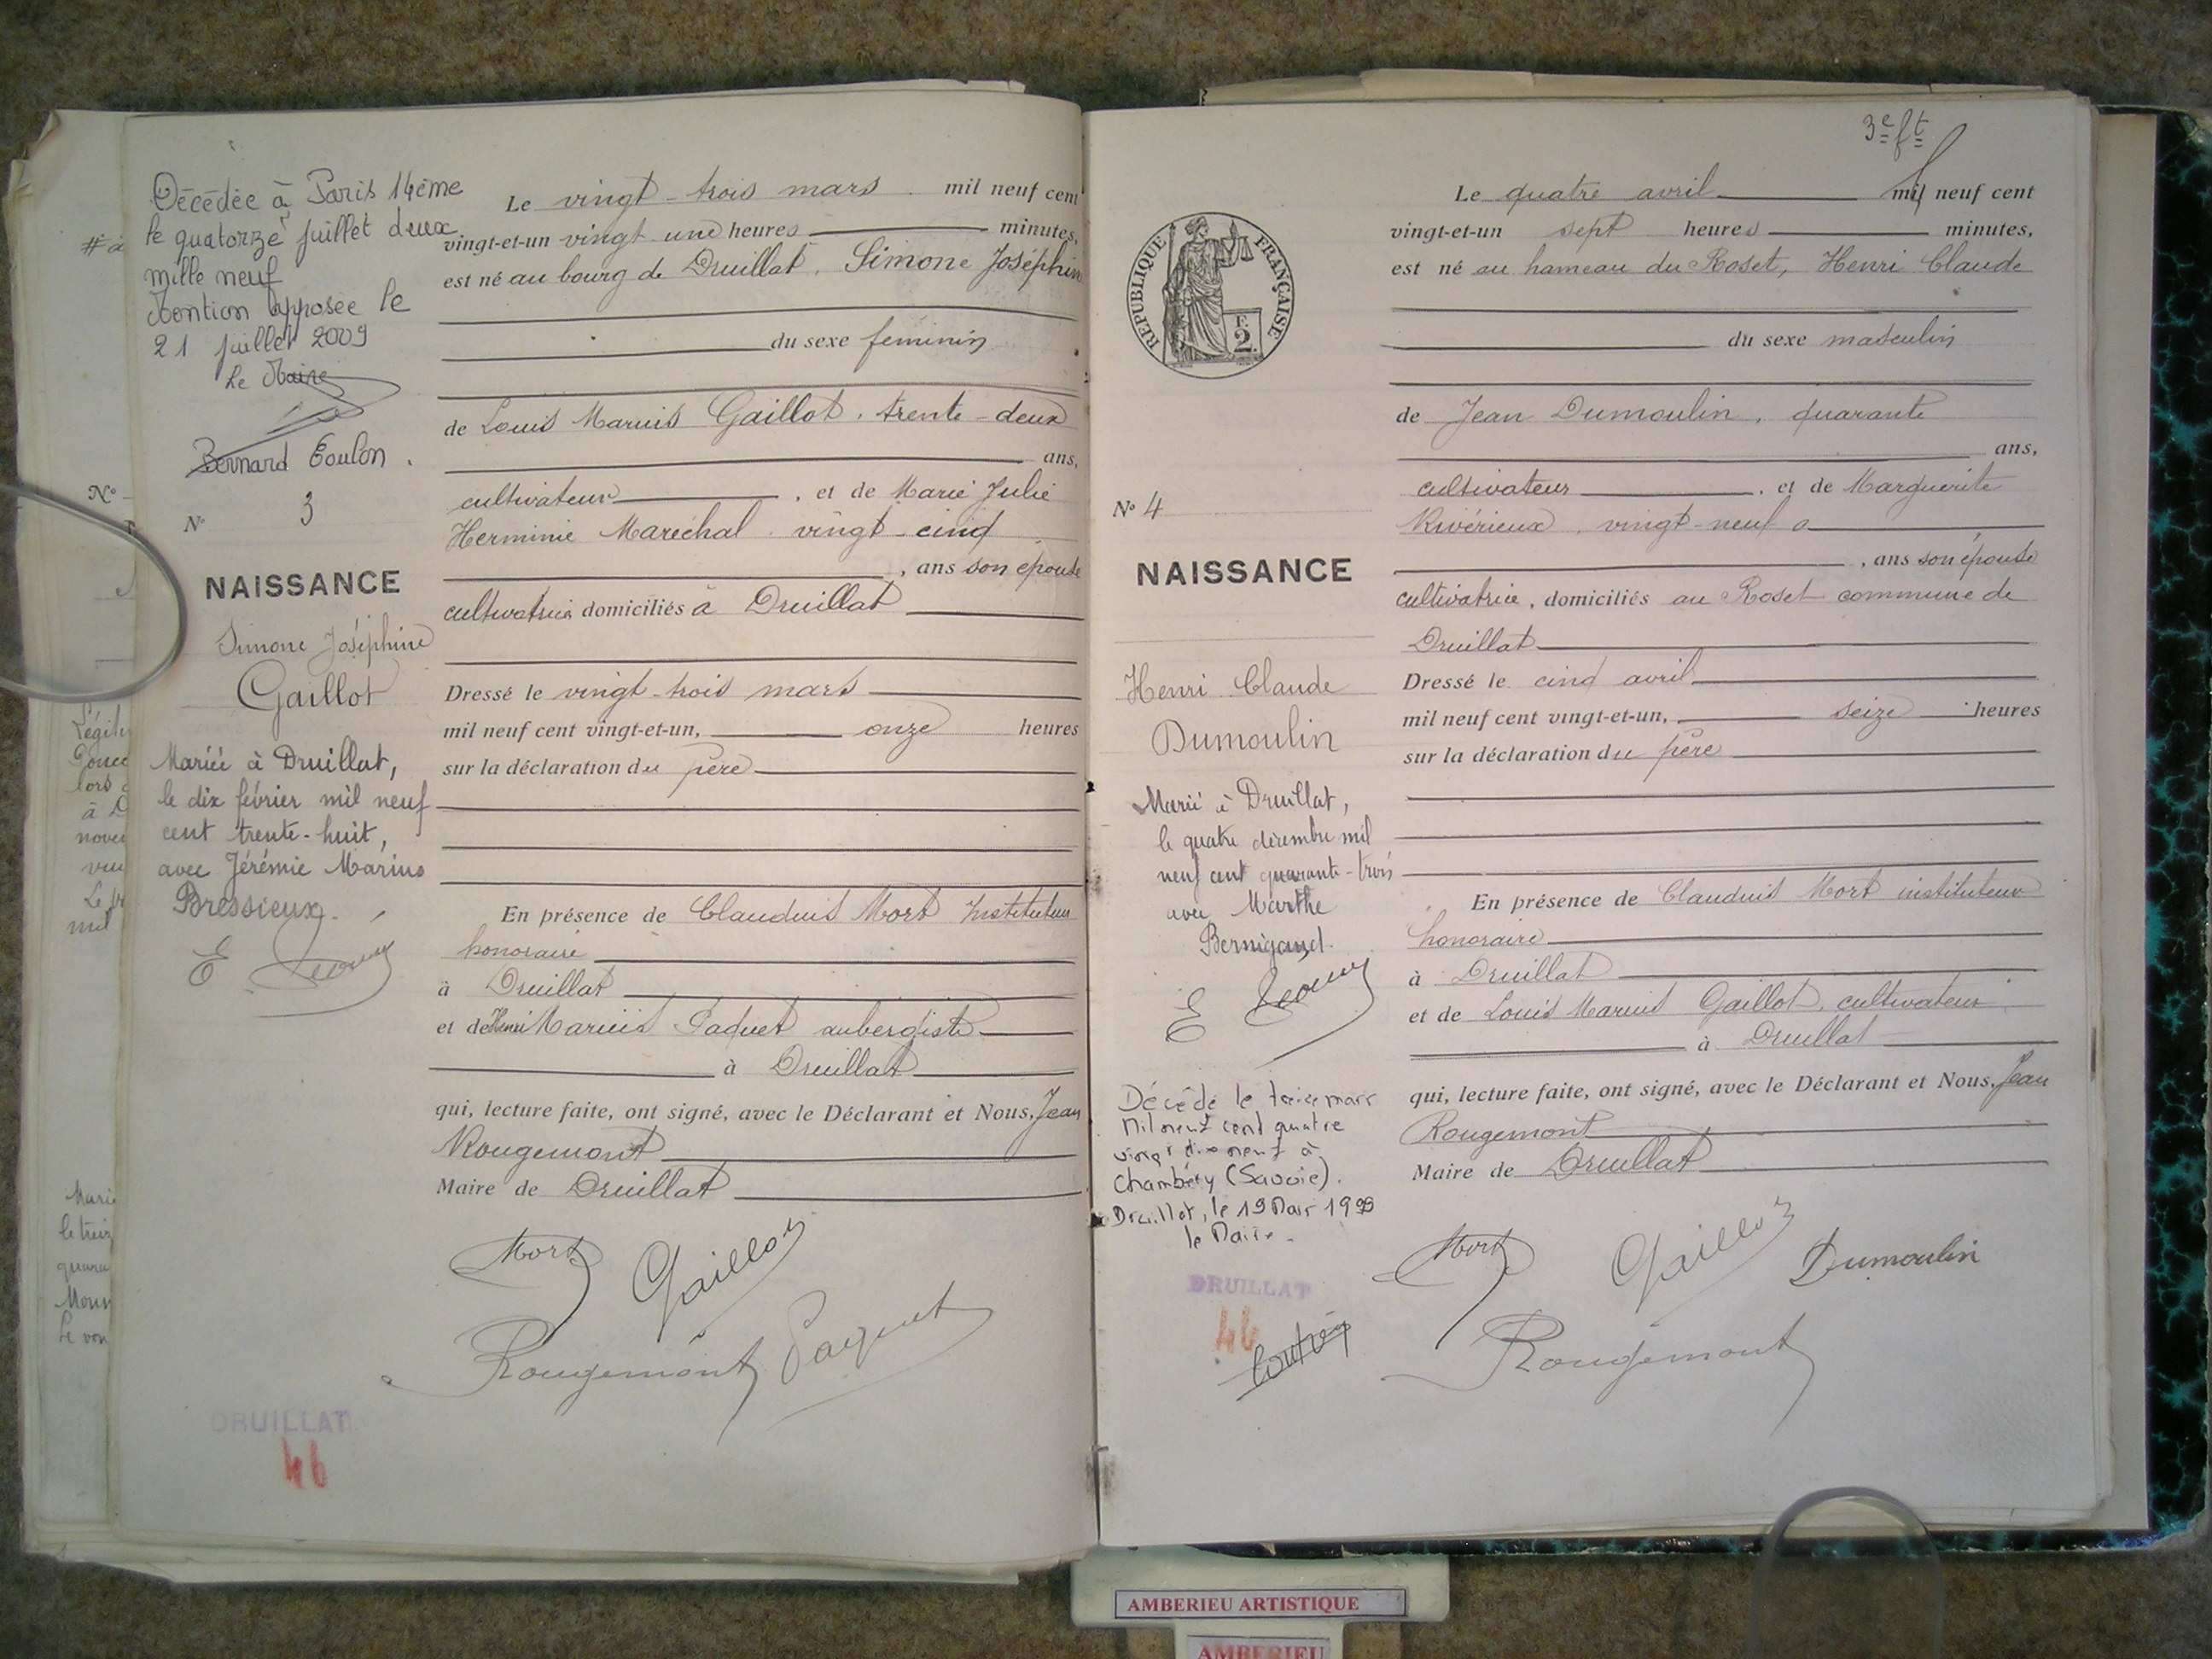 Décédée à Paris 14ème
le quatorze juillet deux
mille neuf
Mention apposée le
21 juillet 2009
Le Maire
Bernard
N° 3
NAISSANCE
Simone Joséphine
Gaillot
Mariée à Druillat,
le dix février mil neuf
cent trente-huit,
avec Jérémie Marius
Bressieux.
DRUILLAT
46
Le vingt-trois mars mil neuf cent
vingt-et-un vingt une heures minutes,
est né au bourg de Druillat, Simone Joséphine
du sexe féminin
de Louis Marius Gaillot, trente-deux
ans,
cultivateur, et de Marie Julie
Herminie Maréchal vingt-cinq
, ans son épouse
cultivatrice domiciliés à Druillat
Dressé le vingt-trois mars
mil neuf cent vingt-et-un, onze heures
sur la déclaration du père
En présence de Claudius Mort Instituteur
honoraire
à Druillat
et de Henri Marius Paquet aubergiste
à Druillat
qui, lecture faite, ont signé, avec le Déclarant et Nous, Jean
Rougemont
Maire de Druillat
Mort Gaillot
Rougemont Paquet
3e ft
REPUBLIQUE FRANÇAISE
E
2
N° 4
NAISSANCE
Henri Claude
Dumoulin
Marié à Druillat,
le quatre décembre mil
neuf cent quarante-trois
avec Marthe
Bernigaud.
Décédé le treize mars
Mil neuf cent quatre
vingt dix neuf à
Chambéry (Savoie).
Druillat, le 19 Mars 1999
le Maire.
DRUILLAT
46
Le quatre avril mil neuf cent
vingt-et-un sept heures minutes,
est né au hameau du Roset, Henri Claude
du sexe masculin
de Jean Dumoulin, quarante
ans,
cultivateur, et de Marguerite
Rivérieux, vingt-neuf
, ans son épouse
cultivatrice, domiciliés au Roset commune de
Druillat
Dressé le cinq avril
mil neuf cent vingt-et-un, seize heures
sur la déclaration du père
En présence de Claudius Mort instituteur
honoraire
à Druillat
et de Louis Marius Gaillot, cultivateur
à Druillat
qui, lecture faite, ont signé, avec le Déclarant et Nous, Jean
Rougemont
Maire de Druillat
Mort Gaillot Dumoulin
Rougemont
AMBERIEU ARTISTIQUE
AMBERIEU